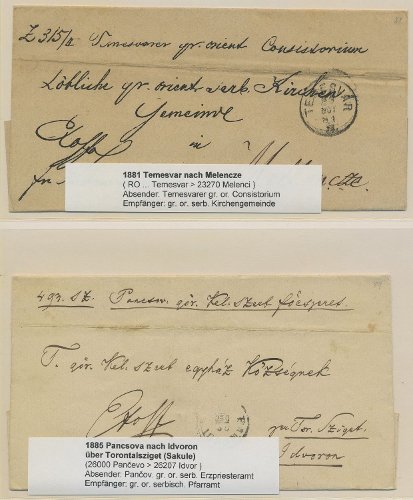 Z 315/a Temesvarer gr. orient Consistorium
Löbliche gr. orient. serb. Kirchen
Gemeinde
in
TEMESVÁR
1881 Temesvar nach Melencze
( RO ... Temesvar > 23270 Melenci )
Absender: Temesvarer gr. or. Consistorium
Empfänger: gr. or. serb. Kirchengemeinde
493. sz. Pancsov. gör. Kel. szerb főesperes.
T. gör. Kel. szerb egyház Községnek
pr Tor. Sziget.
Idvoron
1885 Pancsova nach Idvoron
über Torontalsziget (Sakule)
(26000 Pančevo > 26207 Idvor )
Absender: Pančov. gr. or. serb. Erzpriesteramt
Empfänger: gr. or. serbisch. Pfarramt